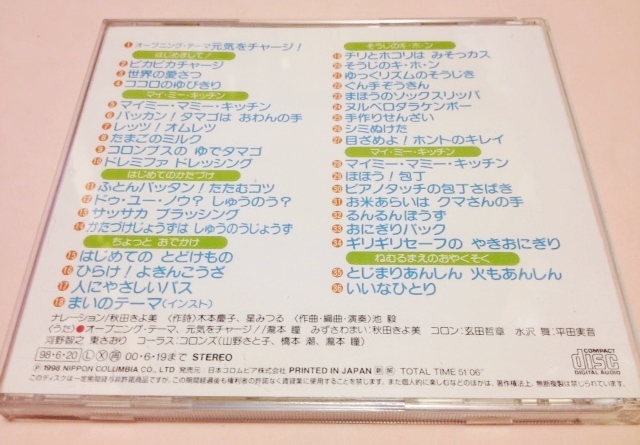 1 オープニング・テーマ 元気をチャージ!
はじめまして!
2 ピカピカチャージ
3 世界の愛さつ
4 ココロのゆびきり
マイ・ミー・キッチン
5 マイミー・マミー・キッチン
6 パッカン! タマゴは おわんの手
7 レッツ! オムレツ
8 たまごのミルク
9 コロンブスの ゆでタマゴ
10 ドレミファ ドレッシング
はじめてのかたづけ
11 ふとんパッタン! たたむコツ
12 ドゥ・ユー・ノウ? しゅうのう?
13 サッサカ ブラッシング
14 かたづけじょうずは しゅうのうじょうず
ちょっと おでかけ
15 はじめての とどけもの
16 ひらけ! よきんこうざ
17 人にやさしいバス
18 まいのテーマ(インスト)
そうじのキ・ホ・ン
19 チリとホコリは みそっカス
20 そうじのキ・ホ・ン
21 ゆっくリズムのそうじき
22 ぐん手ぞうきん
23 まほうのソックスリッパ
24 ヌルベロタラケンボー
25 手作りせんざい
26 シミぬけた
27 目ざめよ! ホントのキレイ
マイ・ミー・キッチン
28 マイミー・マミー・キッチン
29 ほほう! 包丁
30 ピアノタッチの包丁さばき
31 お米あらいは クマさんの手
32 るんるんほうず
33 おにぎりパック
34 ギリギリセーフの やきおにぎり
ねむるまえのおやくそく
35 とじまりあんしん 火もあんしん
36 いいなひとり
ナレーション/秋田きよ美 (作詩)木本慶子、星みつる (作曲・編曲・演奏)池 毅
(うた)●オープニング・テーマ、元気をチャージ!/瀧本 瞳 みずさわまい:秋田きよ美 コロン:玄田哲章 水沢 舞:平田実音
河野智之 東さおり コーラス:コロンズ(山野さと子、橋本 潮、瀧本 瞳)
98・6・20 L X 再 00・6・19まで STEREO
Ⓟ 1998 NIPPON COLUMBIA CO., LTD 発売元 日本コロムビア株式会社 PRINTED IN JAPAN TOTAL TIME 51'06"
このディスクは一定期間貸与非許諾商品ですが、この期間経過後も権利者の許諾なく賃貸業に使用することを禁じます。また個人的に楽しむなどのほかは、著作権法上、無断複製は禁じられています。
COMPACT
disc
DIGITAL AUDIO